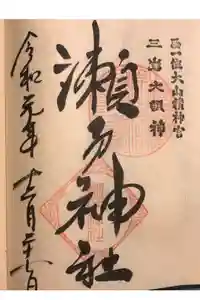 正一位大山積神宮
三島大明神
瀬戸神社
令和元年十二月二十六日